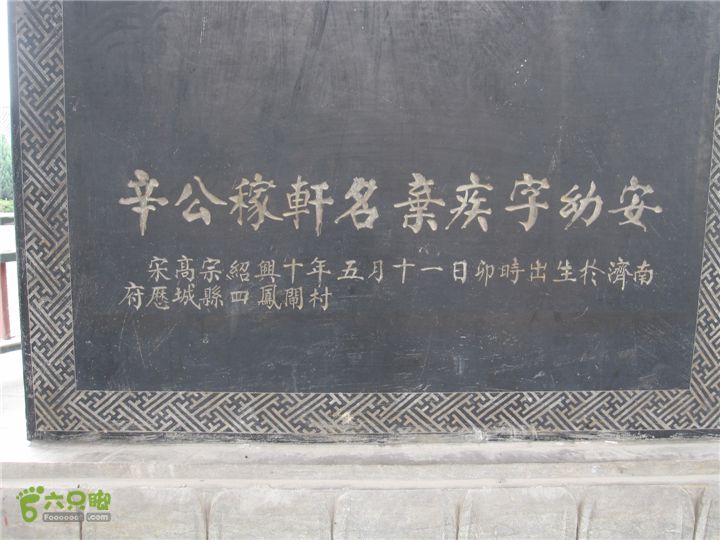 辛公稼軒名棄疾字幼安
宋高宗紹興十年五月十一日卯時出生於濟南
府歷城縣四鳳閘村
六只脚
Foooooot.com